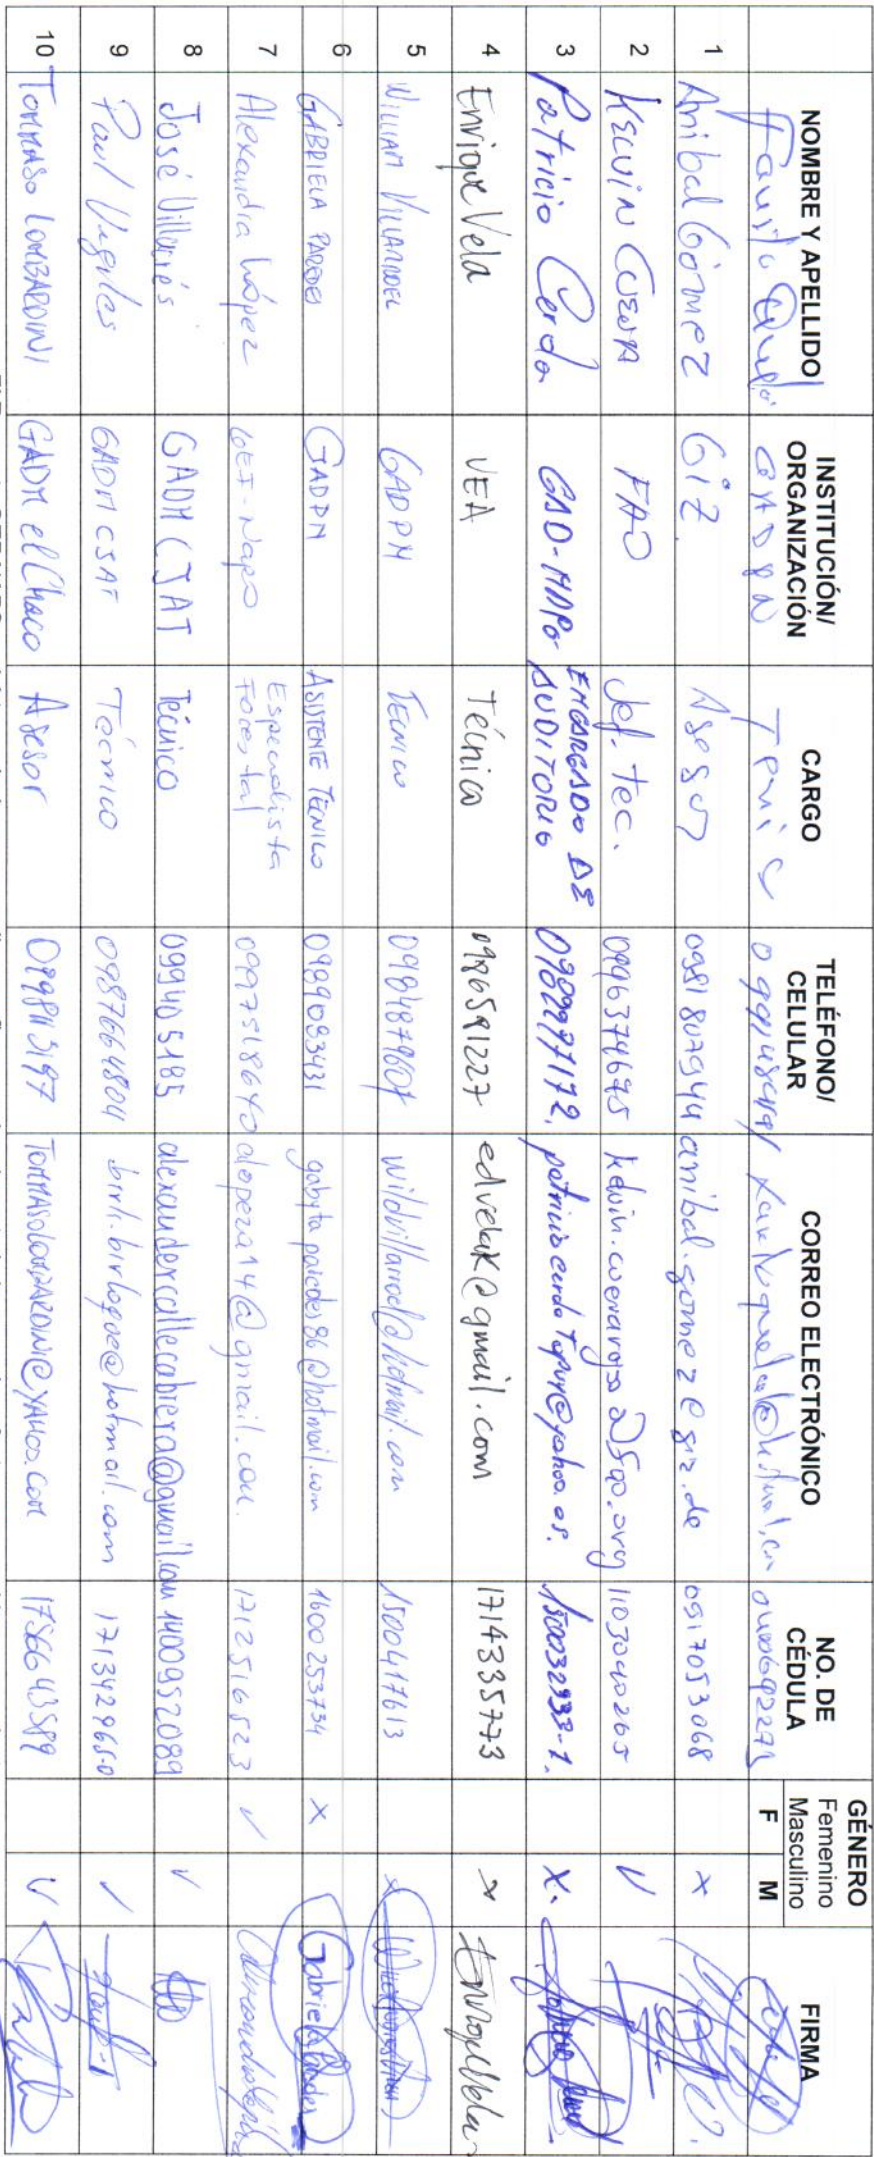 NOMBRE Y APELLIDO INSTITUCIÓN/ ORGANIZACIÓN CARGO TELÉFONO/ CELULAR CORREO ELECTRÓNICO NO. DE CÉDULA GÉNERO Femenino Masculino F M FIRMA
GADPN
1 Anibal Gómez GiZ. Asesor 0981807944 anibal.gomez@giz.de 0917053068 x
2 Kelvin Cueva FAO Jef. tec. 0996374695 kelvin.cuevarojas@fao.org 1103040265 ✓
3 Patricio Cerda GAD-NAPO ENCARGADO DE AUDITORIO X.
4 Enrique Vela VEA Técnico 0986591227 edvelak@gmail.com 1714335773 x Enrique Vela
5 William Villarroel GADPN Técnico 0984879607 wildvillarroel@hotmail.com 1500417613 x
6 GABRIELA PAREDES GADPN ASISTENTE TÉCNICO 0989093431 gabyta paredes86@hotmail.com 1600253734 x Gabriela Paredes
7 Alexandra López Especialista Forestal 0997518640 alopeza14@gmail.com. 1712516523 ✓
8 José GADM CJAT Técnico 099405185 alexandercallecabrera@gmail.com 1400952089 ✓
9 Paul GADM CJAT Técnico 0987664804 1713429650 ✓
10 TOMMASO LOMBARDINI GADM el Chaco Asesor 0998113197 TOMMASOLOMBARDINI@YAHOO.COM 1756643589 ✓